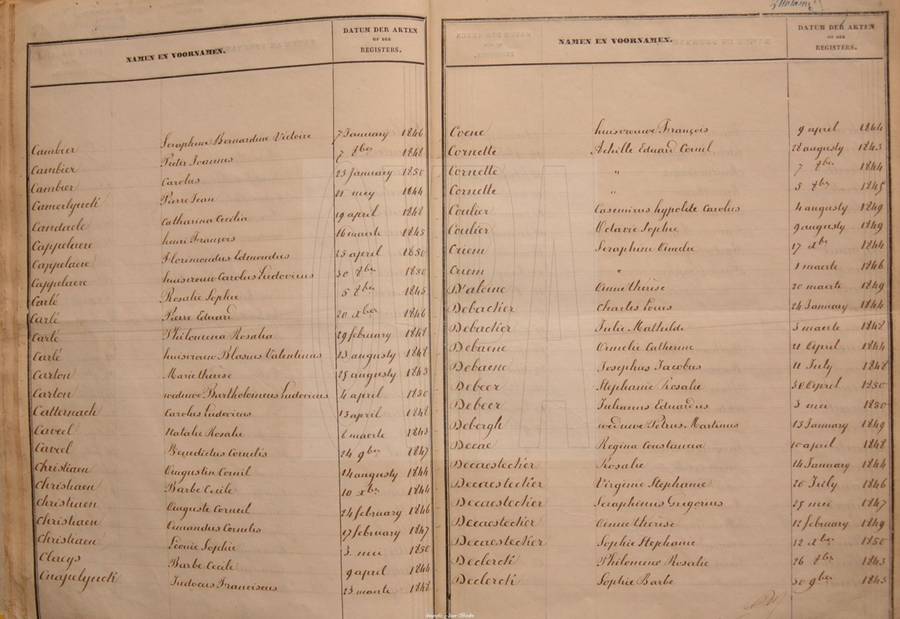 NAMEN EN VOORNAMEN.
DATUM DER AKTEN
OF DER
REGISTERS.
Cambier Seraphine Bernardine Victoire 7 January 1846
Cambier Pieter Joannes 7 8bre 1848
Cambier Carolus 23 January 1850
Camerlynck Pierre Jean 21 mey 1844
Candaele Catharina Cecilia 19 april 1848
Cappelaere henri François 16 maerte 1843
Cappelaere Florimondus Edmondus 25 april 1850
Cappelaere huisvrouw Carolus Ludovicus 30 7bre 1850
Carlé Rosalie Sophie 5 8bre 1845
Carlé Pierre Eduard 20 xbre 1846
Carlé Philomena Rosalia 29 february 1848
Carlé huisvrouw Blasius Valentinus 23 augusty 1848
Carton Marie thérèse 25 augusty 1843
Carton weduwe Bartholomeus Ludovicus 4 april 1850
Catternach Carolus Ludovicus 13 april 1848
Caveel Natalie Rosalie maerte 1843
Caveel Benedictus Cornelis 24 9bre 1847
Christiaen Augustin Cornil 14 augusty 1844
Christiaen Barbe Cecile 10 xbre 1844
Christiaen Auguste Corneil 24 february 1846
Christiaen Amandus Cornelis 17 february 1847
Christiaen Léonie Sophie 3 mei 1850
Claeys Barbe Cecile 9 april 1844
Cnapelynck Judocus Franciscus 23 maerte 1848
NAMEN EN VOORNAMEN.
DATUM DER AKTEN
OF DER
REGISTERS.
Coene huisvrouwe François 9 april 1844
Cornette Achille Eduard Cornil 28 augusty 1843
Cornette " 7 8bre 1844
Cornette " 5 7bre 1845
Coulier Casemirus hypolite Carolus 4 augusty 1849
Coulier Octavie Sophie 9 augusty 1849
Criem Seraphine Amelie 17 xbre 1844
Criem " 1 maerte 1846
D'aleine Anne thérèse 20 maerte 1849
Debackier Charles Louis 24 January 1844
Debackier Julie Mathilde 3 maerte 1848
Debaene Amelie Catherine 21 April 1844
Debaene Josephus Jacobus 11 July 1848
Debeer Stephanie Rosalie 30 April 1850
Debeer Julianus Eduardus 3 mei 1850
Debergh weduwe Petrus Martinus 13 January 1849
Decae Regina Constancia 10 april 1848
Decaestecker Rosalie 14 January 1844
Decaestecker Virginie Stephanie 20 July 1846
Decaestecker Seraphinus Gregorius 25 mei 1847
Decaestecker Anne therese 12 february 1849
Decaestecker Sophie Stephanie 12 xbre 1850
Declerck Philomene Rosalie 26 8bre 1843
Declerck Sophie Barbe 30 9bre 1843